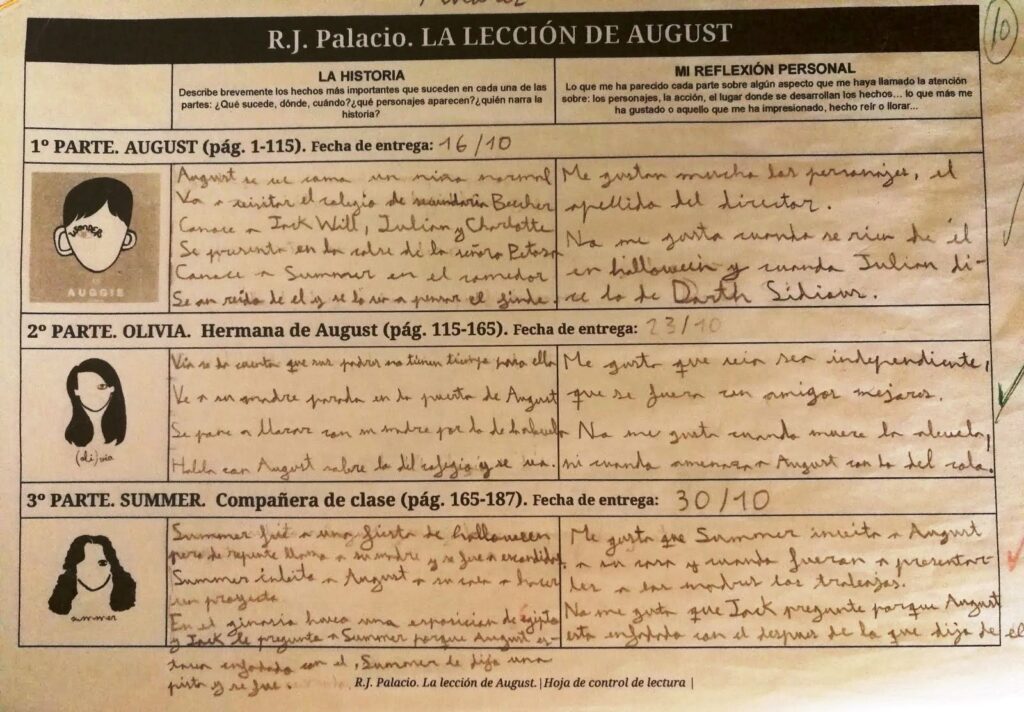 10
R.J. Palacio. LA LECCIÓN DE AUGUST
LA HISTORIA
Describe brevemente los hechos más importantes que suceden en cada una de las
partes: ¿Qué sucede, dónde, cuándo?¿qué personajes aparecen?¿quién narra la
historia?
MI REFLEXIÓN PERSONAL
Lo que me ha parecido cada parte sobre algún aspecto que me haya llamado la atención
sobre: los personajes, la acción, el lugar donde se desarrollan los hechos... lo que más me
ha gustado o aquello que me ha impresionado, hecho reír o llorar...
1º PARTE. AUGUST (pág. 1-115). Fecha de entrega: 16/10
WONDER
AUGGIE
August se ve como un niño normal
Va a visitar el colegio de secundaria Beecher
Conoce a Jack Will, Julian y Charlotte
Se presenta en la de la señora Petosa
Conoce a Summer en el comedor
Se an reido de él y se lo va a pensar el finde.
Me gustan mucho los personajes, el
apellido del director.
No me gusta cuando se rien de él
en halloween y cuando Julian di-
ce lo de Darth Sidious.
2º PARTE. OLIVIA. Hermana de August (pág. 115-165). Fecha de entrega: 23/10
(oli)via
Via se da cuenta que sus padres no tienen tiempo para ella
Ve a su madre parada en la puerta de August
Se pone a llorar con su madre por lo de la abuela
Habla con August sobre lo del colegio y se va.
Me gusta que via sea independiente,
que se fuera con amigos mejores.
No me gusta cuando muere la abuela,
ni cuando amenaza a August con lo del cole.
3º PARTE. SUMMER. Compañera de clase (pág. 165-187). Fecha de entrega: 30/10
summer
Summer fué a una fiesta de halloween
pero de repente llama a su madre y se fue a escondidas
Summer invita a August a su casa a hacer
un proyecto
En el gimnasio hacen una exposicion de egipto
y Jack le pregunta a Summer porque August es-
taba enfadado con el, Summer le dijo una
pista y se fue.
Me gusta que Summer invita a August
a su casa y cuando fueron a presentar-
les a las madres los trabajos.
No me gusta que Jack pregunte porque August
está enfadado con el despues de lo que dijo de el
R.J. Palacio. La lección de August.|Hoja de control de lectura |